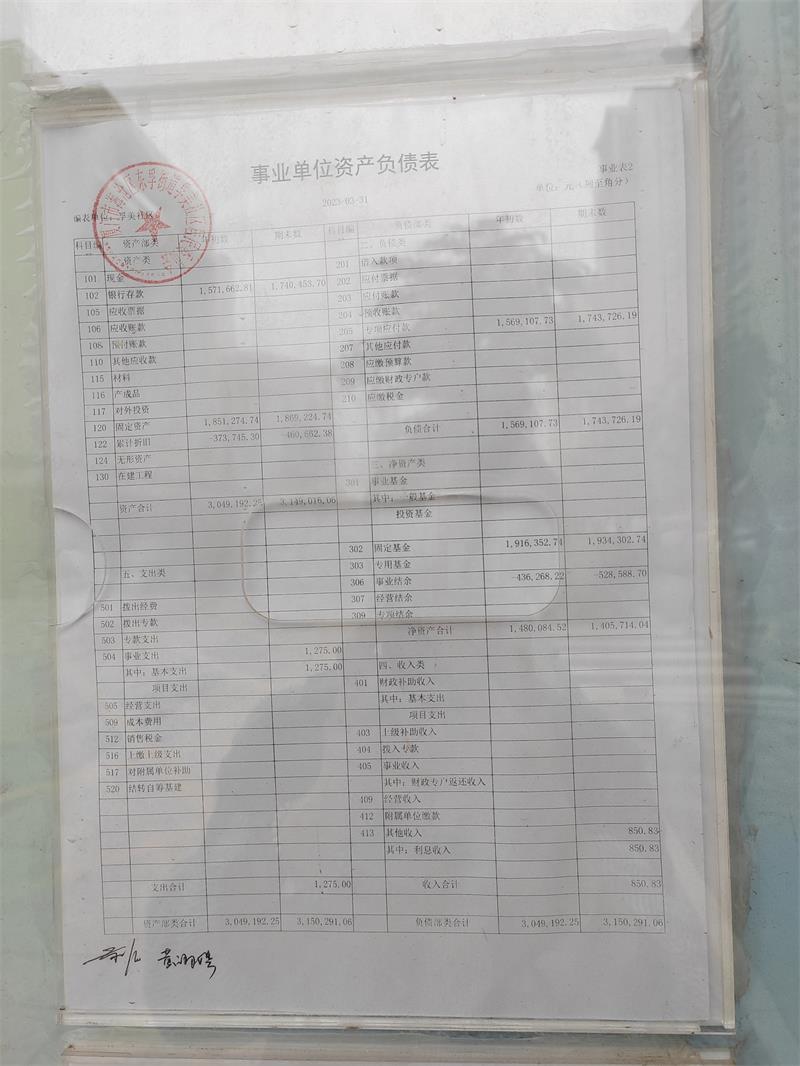 事业单位资产负债表
事业表2
2023-03-31
单位：元（列至角分）
编表单位：孚美社区
科目编 资产部类 年初数 期末数 科目编 负债部类 年初数 期末数
资产类 二、负债类
101 现金 201 借入款项
102 银行存款 1,571,662.81 1,740,453.70 202 应付票据
105 应收票据 203 应付账款
106 应收账款 204 预收账款
108 预付账款 205 专项应付款 1,569,107.73 1,743,726.19
110 其他应收款 207 其他应付款
115 材料 208 应缴预算款
116 产成品 209 应缴财政专户款
117 对外投资 210 应缴税金
120 固定资产 1,851,274.74 1,869,224.74
122 累计折旧 -373,745.30 -460,662.38 负债合计 1,569,107.73 1,743,726.19
124 无形资产
130 在建工程 三、净资产类
301 事业基金
资产合计 3,049,192.25 3,149,016.06 其中：一般基金
投资基金
302 固定基金 1,916,352.74 1,934,302.74
303 专用基金
五、支出类 306 事业结余 -436,268.22 -528,588.70
307 经营结余
501 拨出经费 309 专项结余
502 拨出专款 净资产合计 1,480,084.52 1,405,714.04
503 专款支出
504 事业支出 1,275.00 四、收入类
其中：基本支出 1,275.00 401 财政补助收入
项目支出 其中：基本支出
505 经营支出 项目支出
509 成本费用 403 上级补助收入
512 销售税金 404 拨入专款
516 上缴上级支出 405 事业收入
517 对附属单位补助 其中：财政专户返还收入
520 结转自筹基建 409 经营收入
412 附属单位缴款
413 其他收入 850.83
其中：利息收入 850.83
支出合计 1,275.00 收入合计 850.83
资产部类合计 3,049,192.25 3,150,291.06 负债部类合计 3,049,192.25 3,150,291.06